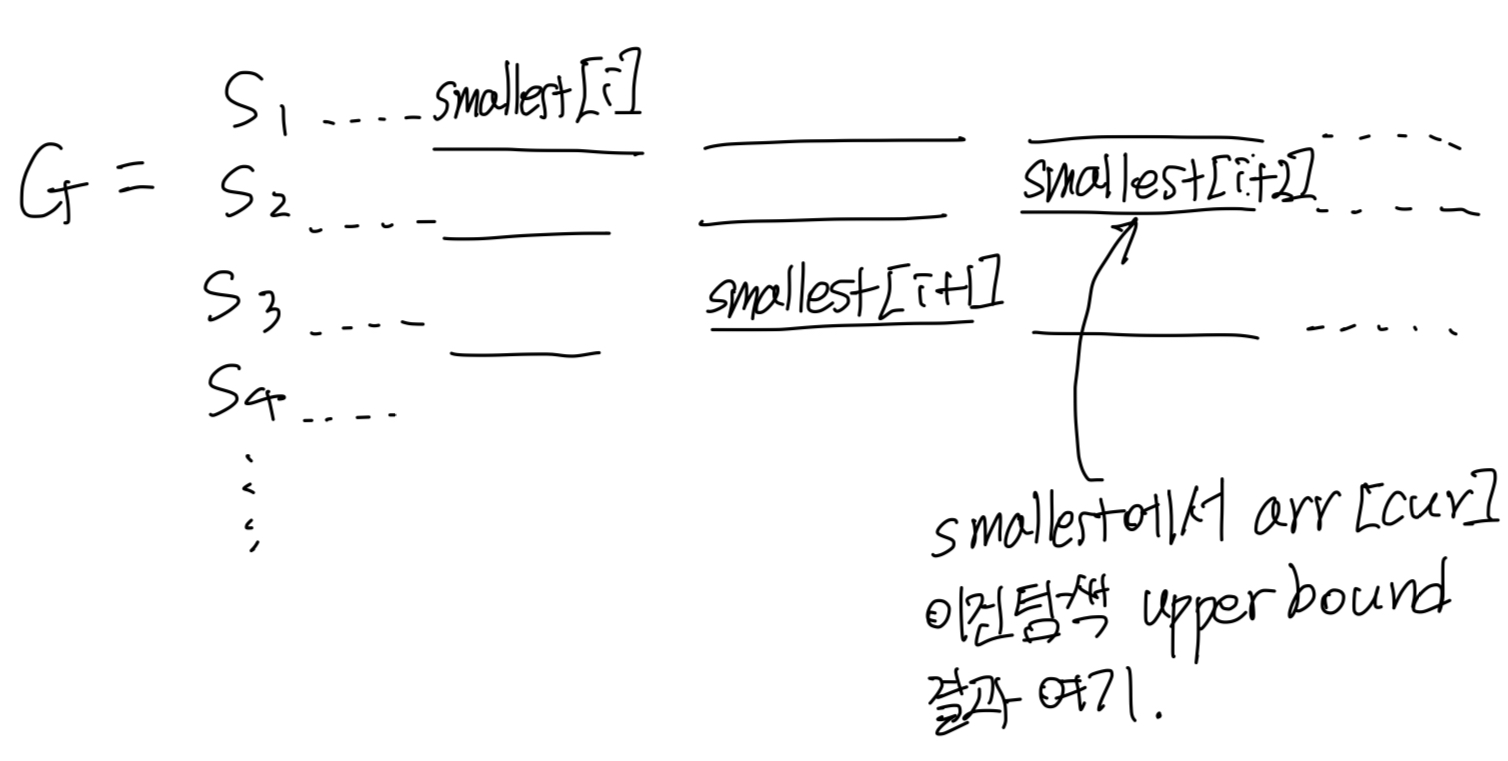 S1 .... smallest[i]
G = S2 .... smallest[i+2]
S3 .... smallest[i+1]
S4 ....
smallest에서 arr[cur]
이진탐색 upper bound
결과 여기.